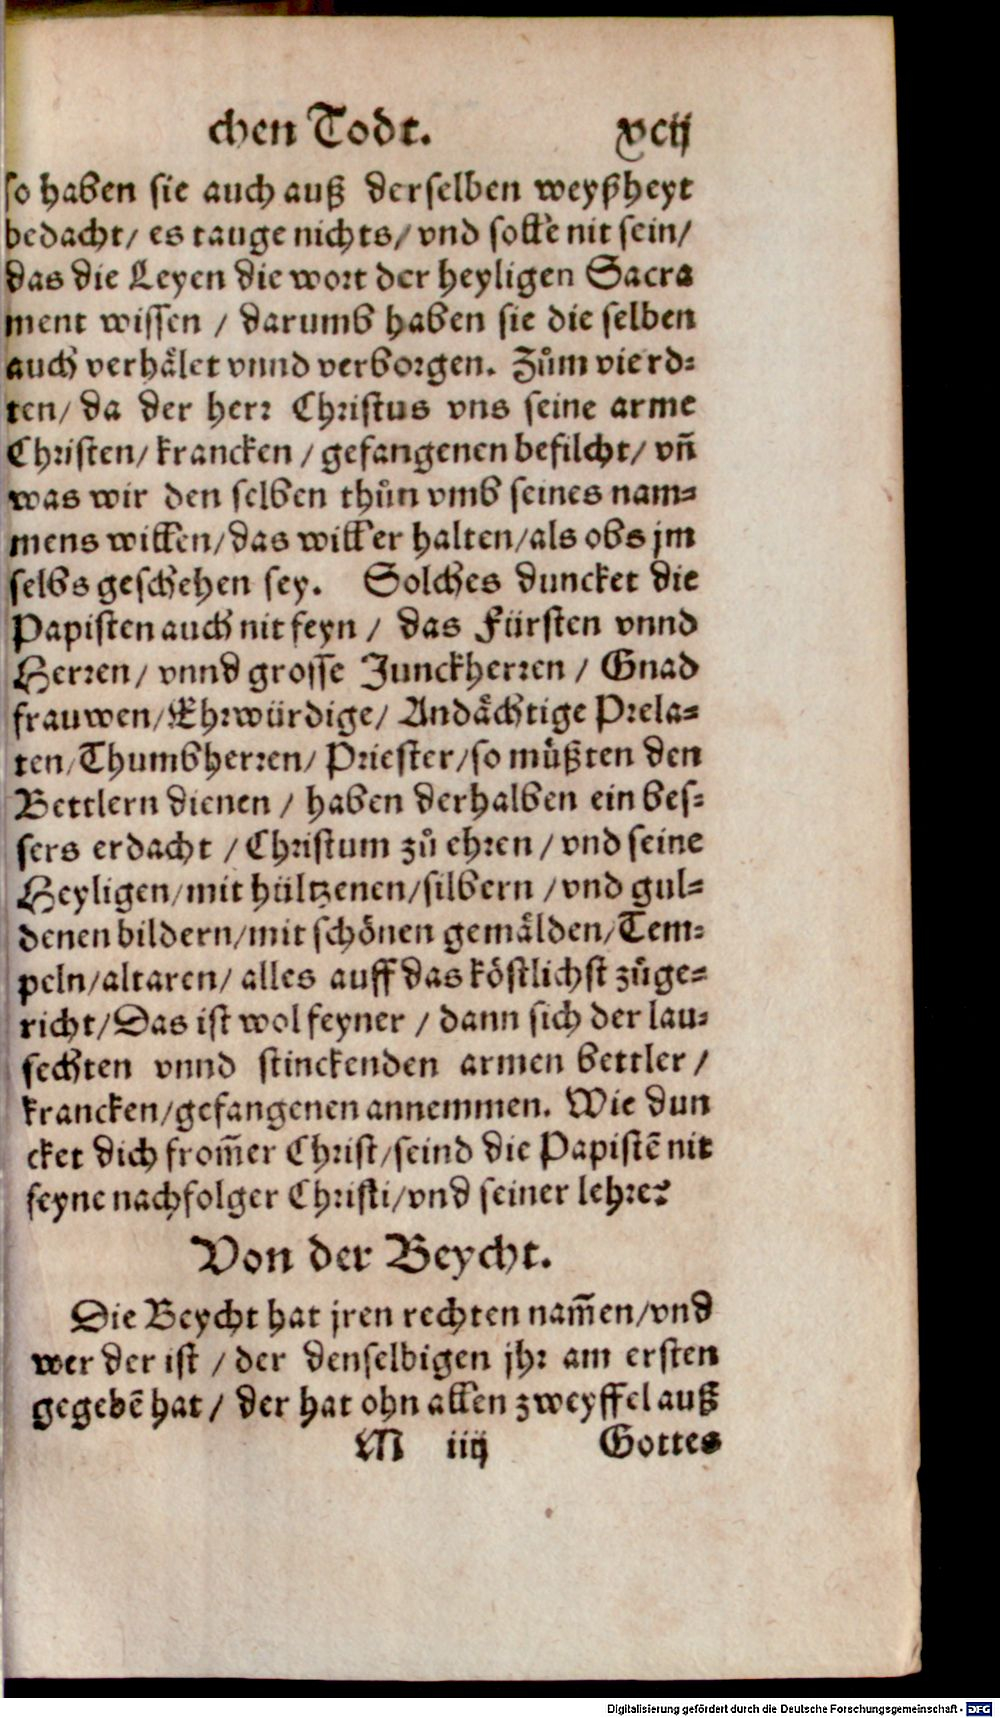 chen Todt. xcij
so haben sie auch auß derselben weyßheyt
bedacht/ es tauge nichts/ vnd solle nit sein/
das die Leyen die wort der heyligen Sacra
ment wissen / darumb haben sie die selben
auch verhålet vnnd verborgen. Zům vierd⸗
ten/ da der herr Christus vns seine arme
Christen/ krancken / gefangenen befilcht/ vñ
was wir den selben thůn vmb seines nam⸗
mens willen/das will er halten/als obs jm
selbs geschehen sey. Solches duncket die
Papisten auch nit feyn / das Fürsten vnnd
Herren/ vnnd grosse Junckherren / Gnad
frauwen/Ehrwürdige/ Andåchtige Prela⸗
ten/Thumbherren/ Priester/so müßten den
Bettlern dienen / haben derhalben ein bes⸗
sers erdacht / Christum zů ehren / vnd seine
Heyligen/mit hültzenen/silbern /vnd gul⸗
denen bildern/mit schönen gemålden/Tem⸗
peln/altaren/ alles auff das köstlichst zůge⸗
richt/Das ist wol feyner / dann sich der lau⸗
sechten vnnd stinckenden armen bettler /
krancken/gefangenen annemmen. Wie dun
cket dich from̃er Christ/seind die Papistē nit
feyne nachfolger Christi/vnd seiner lehre?
Von der Beycht.
Die Beycht hat jren rechten nam̃en/vnd
wer der ist / der denselbigen jhr am ersten
gegebē hat / der hat ohn allen zweyffel auß
M iiij Gottes
Digitalisierung gefördert durch die Deutsche Forschungsgemeinschaft - DFG